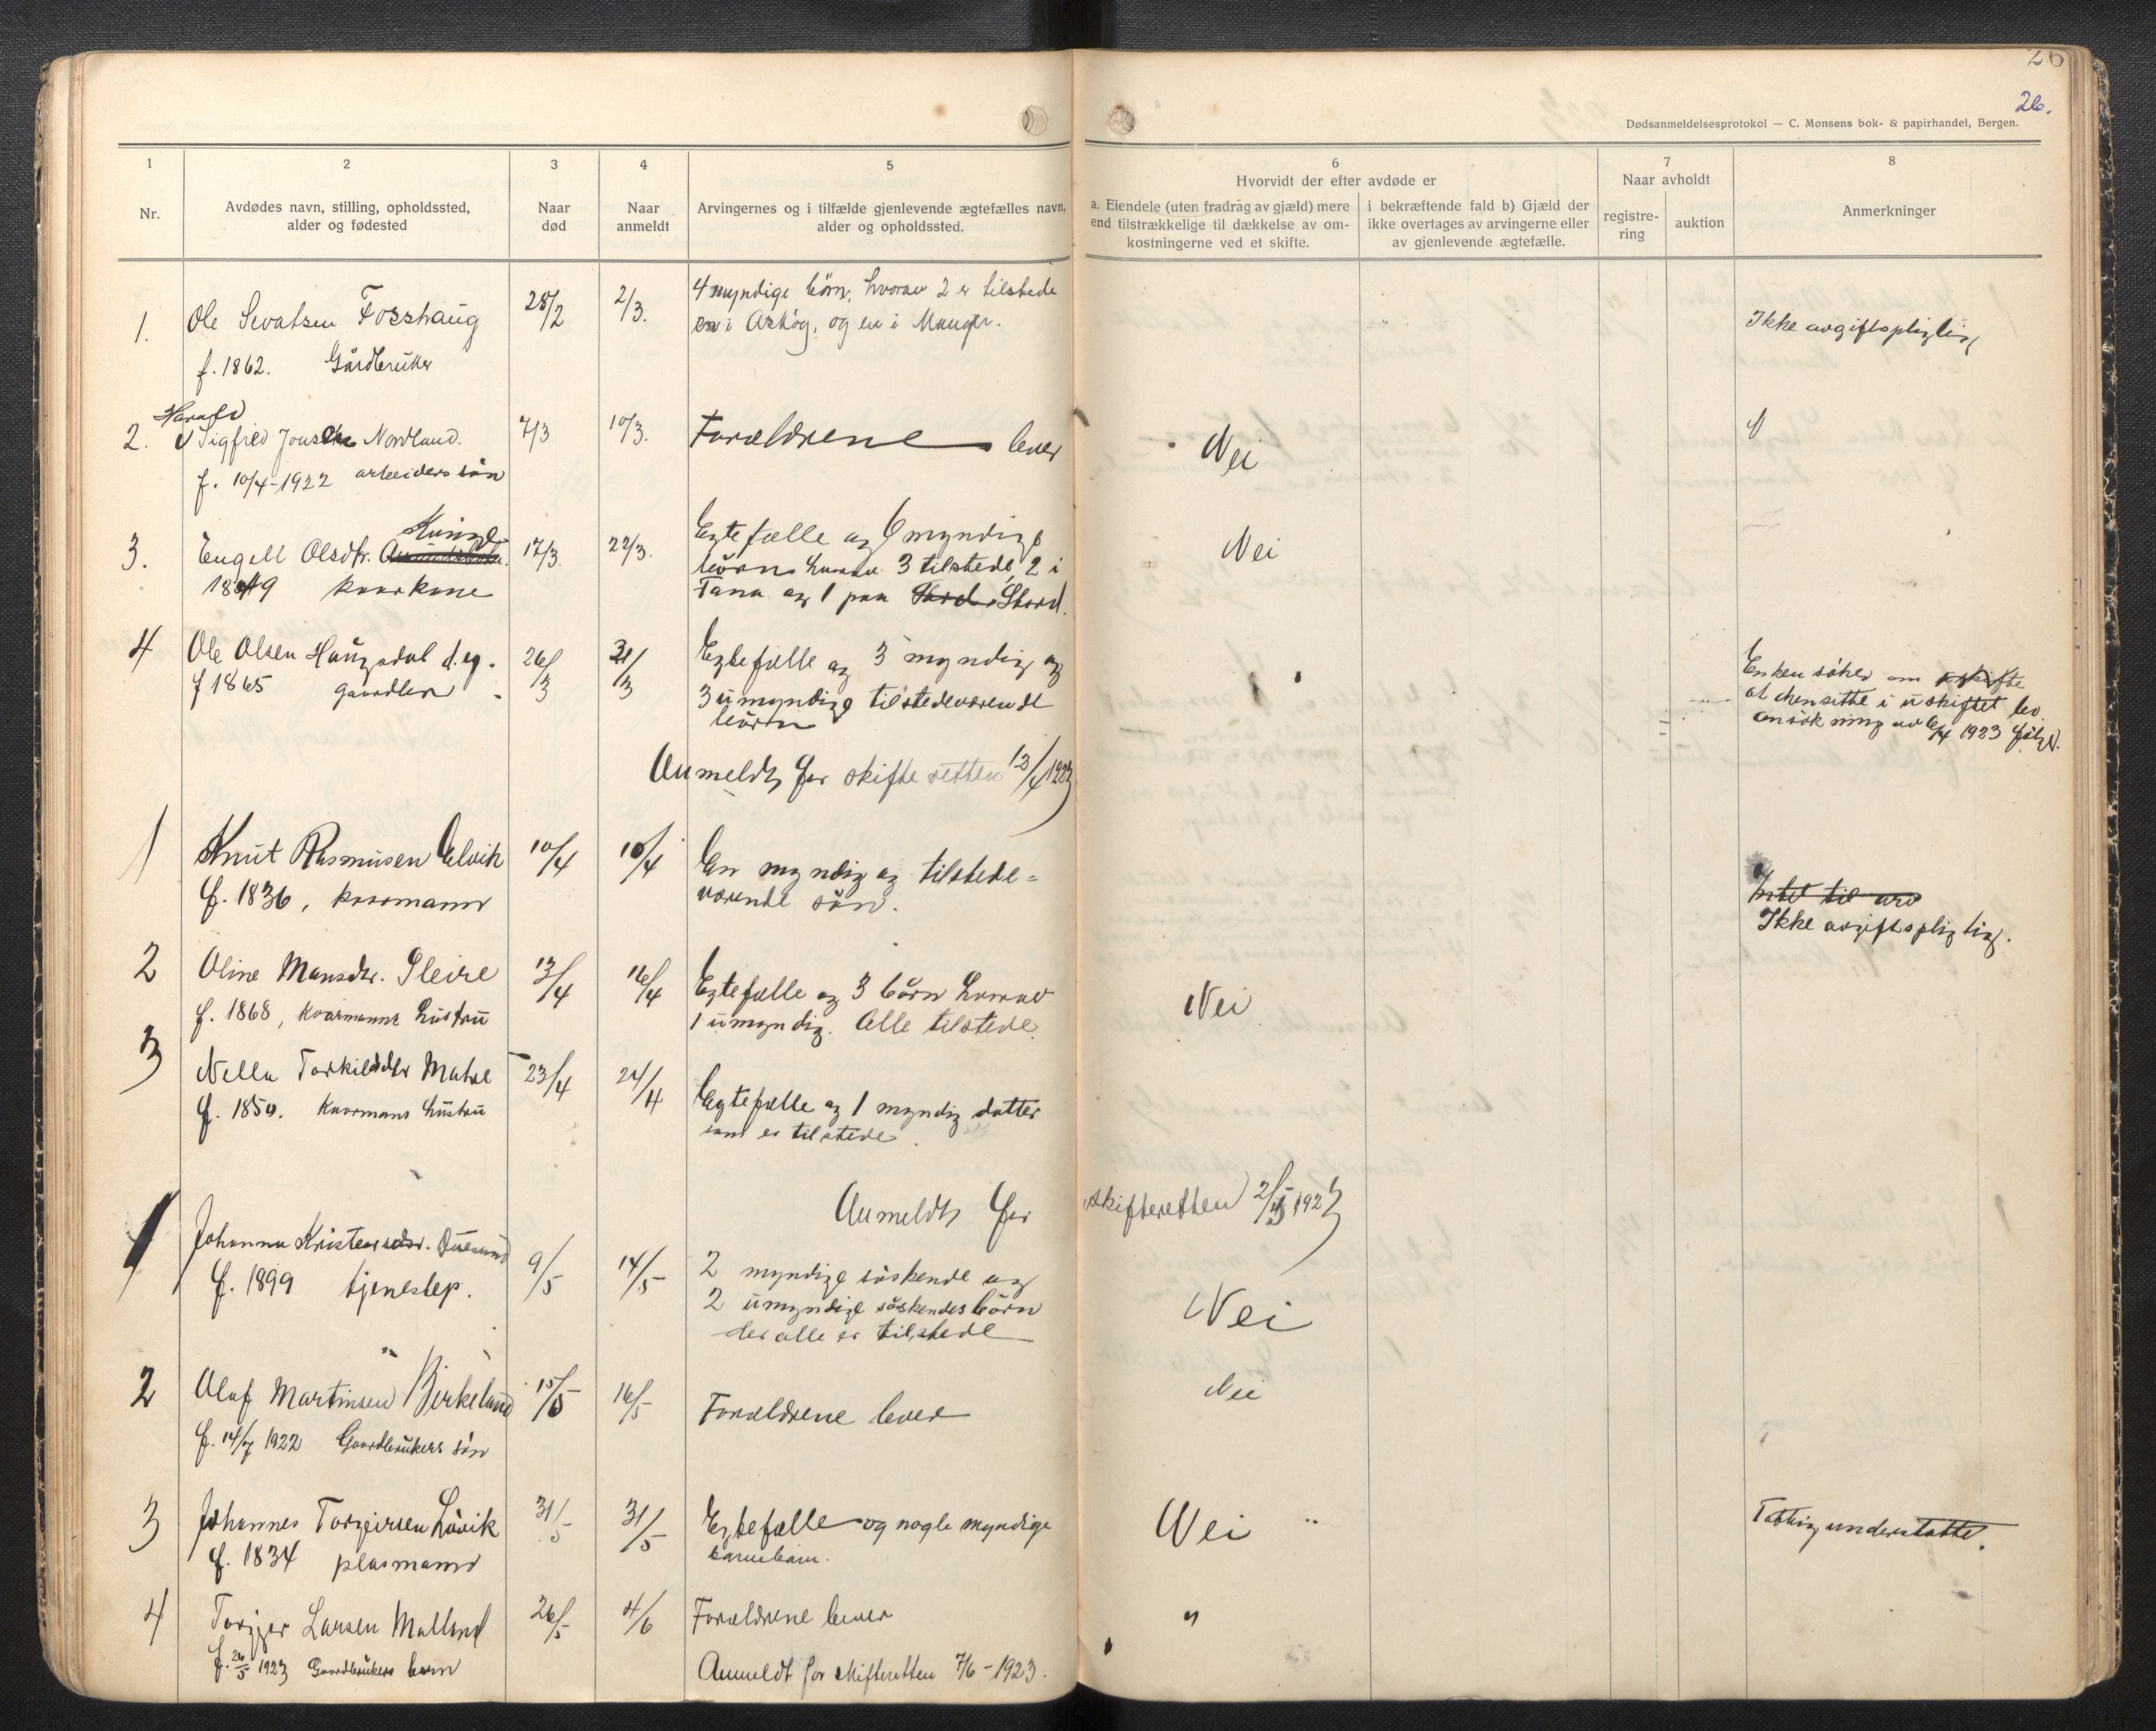 26
26.
Dødsanmeldelsesprotokol — C. Monsens bok- & papirhandel, Bergen.
1
2
3
4
5
6
7
8
Nr.
Avdødes navn, stilling, opholdssted,
alder og fødested
Naar
død
Naar
anmeldt
Arvingernes og i tilfælde gjenlevende ægtefælles navn,
alder og opholdssted.
Hvorvidt der efter avdøde er
a. Eiendele (uten fradrag av gjæld) mere
end tilstrækkelige til dækkelse av om-
kostningerne ved et skifte.
i bekræftende fald b) Gjæld der
ikke overtages av arvingerne eller
av gjenlevende ægtefælle.
Naar avholdt
registre-
ring
auktion
Anmerkninger
1. Ole Sevatsen Fosshaug 28/2 2/3. 4 myndige børn, hvorav 2 er tilstede
f. 1862. Gårdbruker en i Askøy, og en i Manger.
Ikke avgiftspligtig
Harald
2. Sigfred Jonsen Nordland. 7/3 10/3. Forældrene lever Nei
f. 10/4-1922 arbeiders søn
3. Engell Olsdtr. 17/3. 22/3. Egtefælle og 6 myndige Nei
1849 kaarkone børn hvorav 3 tilstede, 2 i
Fana og 1 paa Stord.
4 Ole Olsen Haugsdal d.eg. 26/3 31/3 Egtefælle og 3 myndig og
f 1865 gaardbr 3 umyndige tilstedeværende
børn
Enken søker om
at hensitte i uskiftet bo.
ansøkning av 6/4 1923 følger.
Anmeldt for skifteretten 13/4 1923
1 Knut Rasmusen Elvik 10/4 10/4 En myndig og tilstede=
f. 1836, kaarmann værende søn.
Intet til arv
Ikke avgiftspligtig.
2 Oline Mansdtr. Sleire 13/4 16/4 Egtefælle og 3 børn hvorav Nei
f. 1868, kaarmanns hustru 1 umyndig. Alle tilstede.
3 Nella Torkildsdtr Matre 23/4 24/4 Egtefælle og 1 myndig datter
f. 1850. Kaarmans hustru som er tilstede.
Anmeldt for skifteretten 2/5 1923
1 Johanna Kristensdtr. Duesund 9/5 14/5 2 myndige søskende og
f. 1899 tjenestep. 2 umyndige søskendes børn Nei
der alle er tilstede
2 Olaf Martinsen Birkeland 15/5 16/5 Forældrene lever Nei
f. 14/7 1922 Gaardbrukers søn
3 Johannes Torgeirsen Løvik 31/5 31/5 Egtefælle og nogle myndige Nei
f. 1834 plasmann barnebarn.
Fattigunderstøttet.
4 Torger Larsen Molland 26/5 4/6 Forældrene lever "
f. 26/5 1923 Gaardbrukers barn
Anmeldt for skifteretten 7/6-1923.